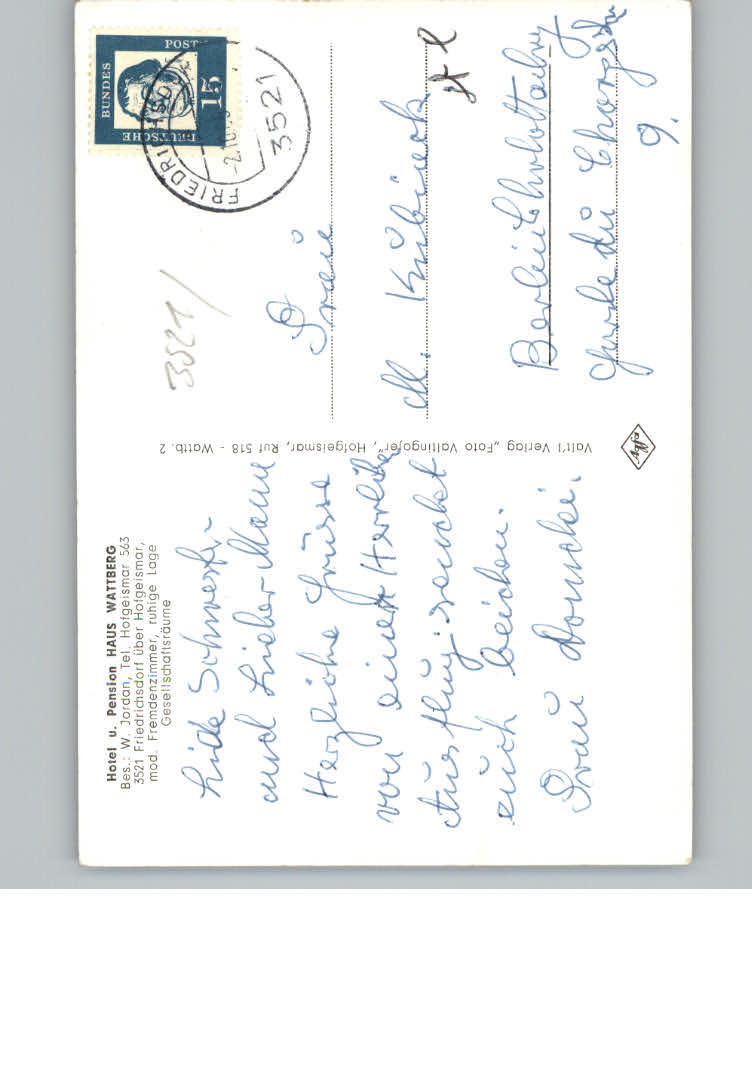 Hotel u. Pension HAUS WATTBERG
Bes.: W. Jordan, Tel. Hofgeismar 563
3521 Friedrichsdorf über Hofgeismar,
mod. Fremdenzimmer, ruhige Lage
Gesellschaftsräume
Schwester
und Lieber Mann
Herzliche Grüsse
von einen Herrlichen
Ausflug sendet
euch beiden.
Fraú
Vati'l Verlag „Foto Valtingojer", Hofgeismar, Ruf 518 - Wattb. 2
Agfa
DEUTSCHE
BUNDES
POST
15
FRIEDRICHSD
3521
3521/
Fraú
M. Kúbíack
Berlin Charlottenburg
9.